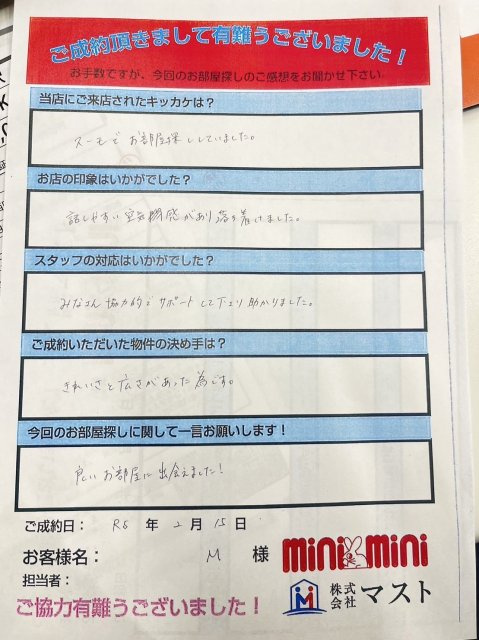 ご成約頂きまして有難うございました！
お手数ですが、今回のお部屋探しのご感想をお聞かせ下さい
当店にご来店されたキッカケは？
スーモでお部屋探ししていました。
お店の印象はいかがでした？
話しやすい空気感があり落ち着けました。
スタッフの対応はいかがでした？
みなさん協力的でサポートして下さり助かりました。
ご成約いただいた物件の決め手は？
きれいさと広さがあった為です。
今回のお部屋探しに関して一言お願いします！
良いお部屋に出会えました！
ご成約日： R5 年 2 月 15 日
お客様名： M 様
mini mini
担当者：
株式会社 マスト
ご協力有難うございました！